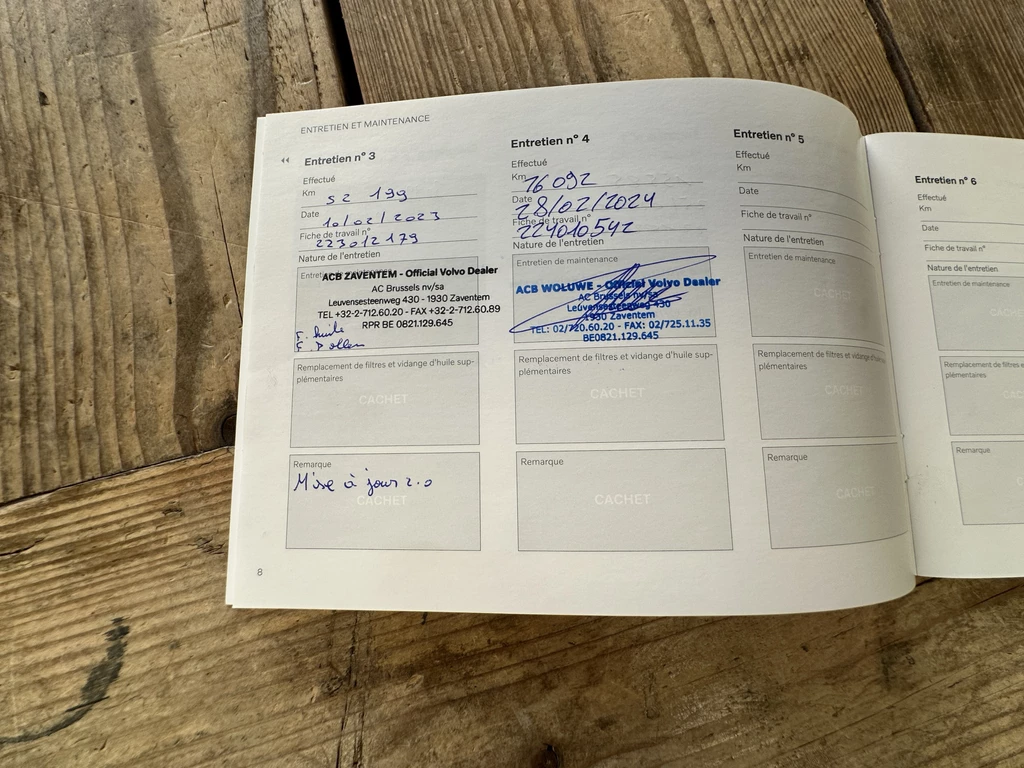 ENTRETIEN ET MAINTENANCE
Entretien n° 3
Effectué
Km 52 199
Date 10/02/2023
Fiche de travail n° 223012179
Nature de l'entretien
ACB ZAVENTEM - Official Volvo Dealer
AC Brussels nv/sa
Leuvensesteenweg 430 - 1930 Zaventem
TEL +32-2-712.60.20 - FAX +32-2-712.60.89
RPR BE 0821.129.645
F. huile
F. Pollen
Remplacement de filtres et vidange d'huile sup-
plémentaires
CACHET
Remarque
Mise à jour 2.0
CACHET
8
Entretien n° 4
Effectué
Km 76 092
Date 28/02/2024
Fiche de travail n° 224010542
Nature de l'entretien
Entretien de maintenance
ACB WOLUWE - Official Volvo Dealer
AC Brussels nv/sa
Leuvensesteenweg 430
1930 Zaventem
TEL: 02/720.60.20 - FAX: 02/725.11.35
BE0821.129.645
Remplacement de filtres et vidange d'huile sup-
plémentaires
CACHET
Remarque
CACHET
Entretien n° 5
Effectué
Km
Date
Fiche de travail n°
Nature de l'entretien
Entretien de maintenance
CACHET
Remplacement de filtres et vidange d'huile
plémentaires
CACHET
Remarque
CACHET
Entretien n° 6
Effectué
Km
Date
Fiche de travail n°
Nature de l'entretien
Entretien de maintenance
Remplacement de filtres
plémentaires
Remarque